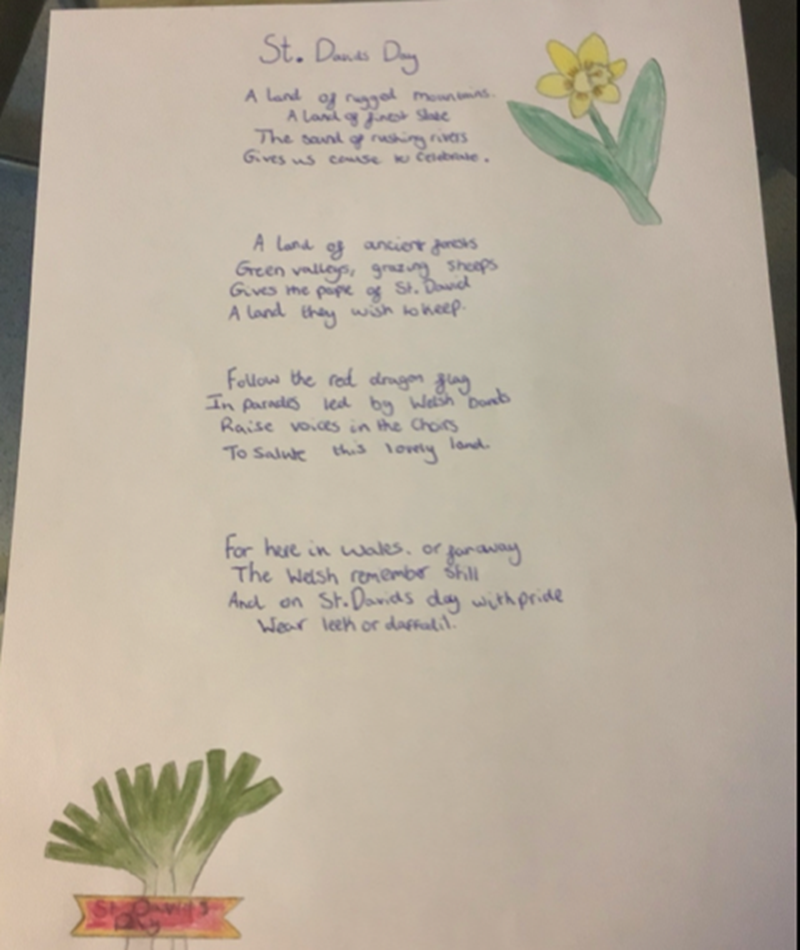 St. Davids Day
A land of rugged mountains.
A land of finest slate
The sound of rushing rivers
Gives us cause to celebrate.
A land of ancient forests
Green valleys, grazing sheeps
Gives the pope of St. David
A land they wish to keep.
Follow the red dragon flag
In parades led by Welsh bands
Raise voices in the Choirs
To Salute this lovely land.
For here in Wales. or far away
The Welsh remember still
And on St. Davids day with pride
Wear leek or daffalil.
St. David's
Day